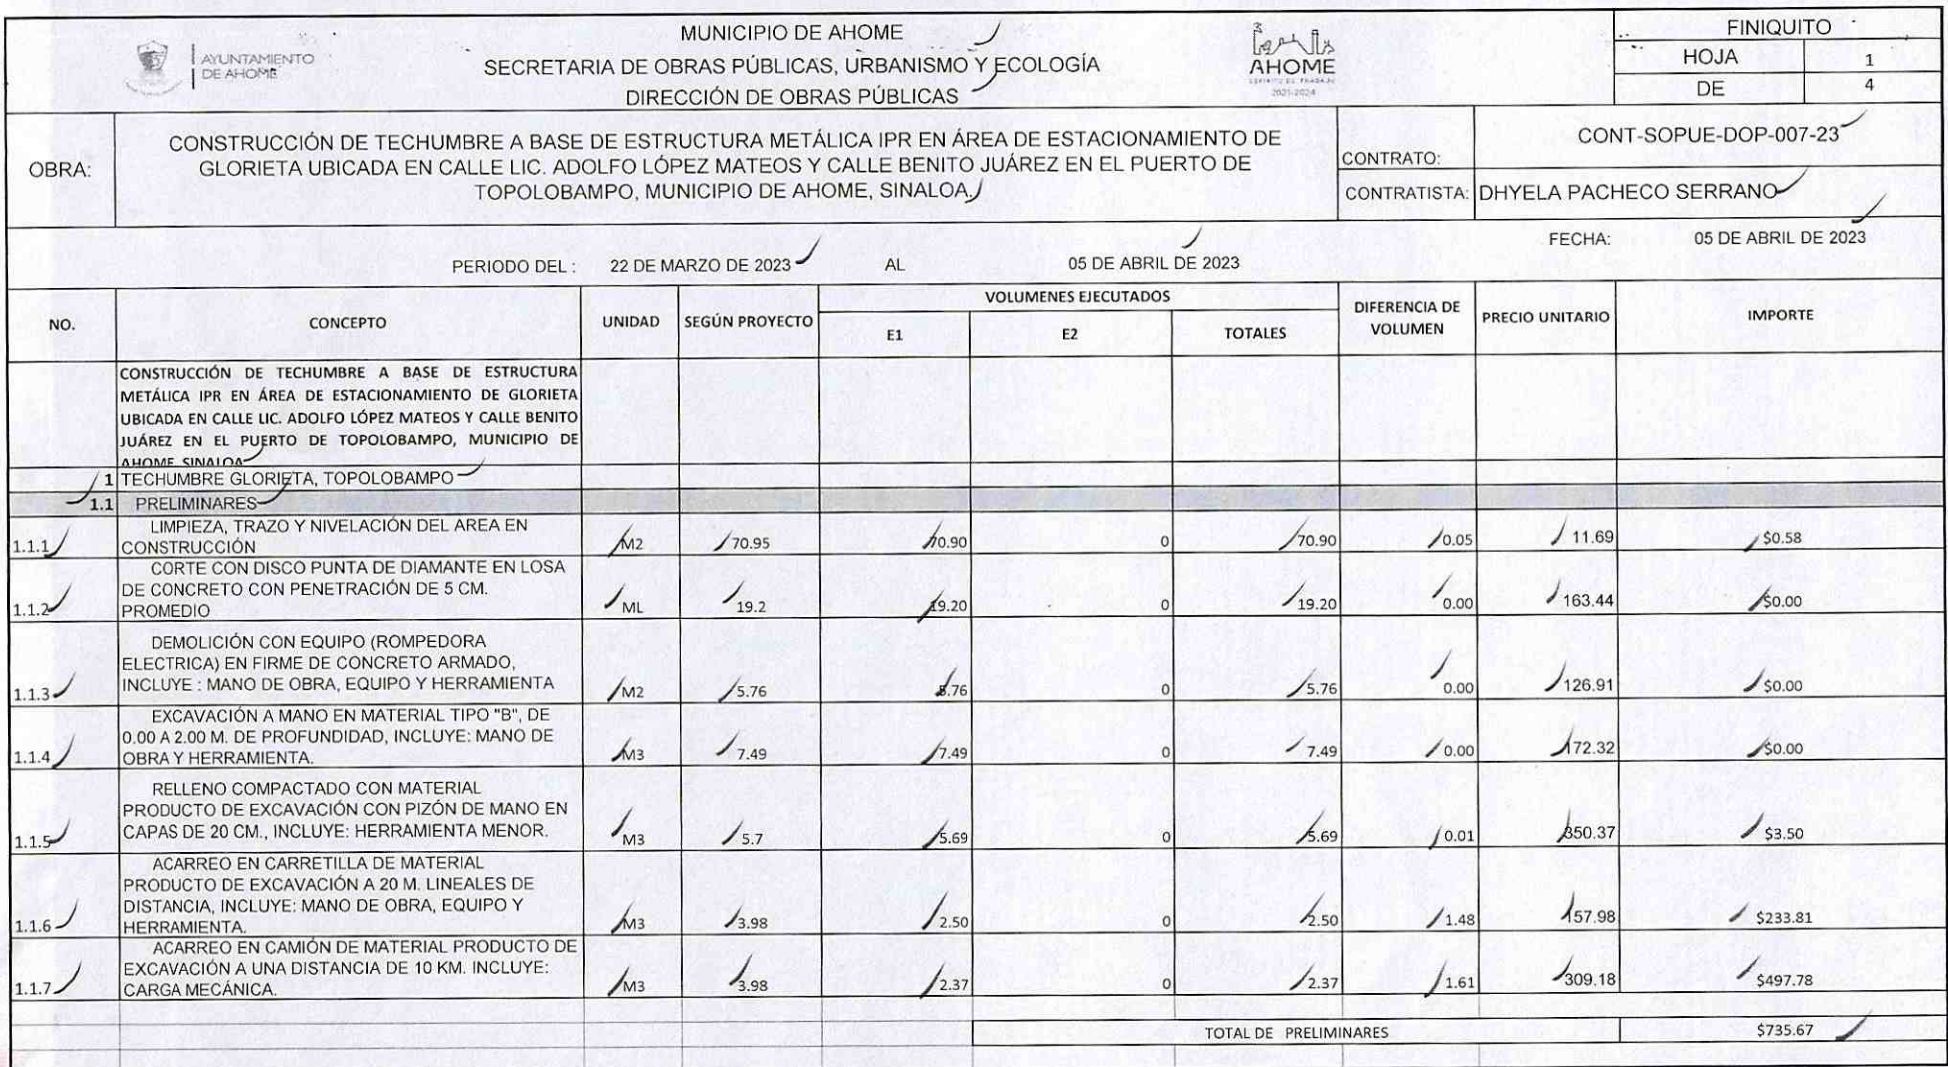 AYUNTAMIENTO
DE AHOME
MUNICIPIO DE AHOME
SECRETARIA DE OBRAS PÚBLICAS, URBANISMO Y ECOLOGÍA
DIRECCIÓN DE OBRAS PÚBLICAS
AHOME
2021-2024
FINIQUITO
HOJA 1
DE 4
OBRA:
CONSTRUCCIÓN DE TECHUMBRE A BASE DE ESTRUCTURA METÁLICA IPR EN ÁREA DE ESTACIONAMIENTO DE
GLORIETA UBICADA EN CALLE LIC. ADOLFO LÓPEZ MATEOS Y CALLE BENITO JUÁREZ EN EL PUERTO DE
TOPOLOBAMPO, MUNICIPIO DE AHOME, SINALOA.
CONTRATO: CONT-SOPUE-DOP-007-23
CONTRATISTA: DHYELA PACHECO SERRANO
FECHA: 05 DE ABRIL DE 2023
PERIODO DEL : 22 DE MARZO DE 2023 AL 05 DE ABRIL DE 2023
NO. CONCEPTO UNIDAD SEGÚN PROYECTO VOLUMENES EJECUTADOS DIFERENCIA DE VOLUMEN PRECIO UNITARIO IMPORTE
E1 E2 TOTALES
CONSTRUCCIÓN DE TECHUMBRE A BASE DE ESTRUCTURA
METÁLICA IPR EN ÁREA DE ESTACIONAMIENTO DE GLORIETA
UBICADA EN CALLE LIC. ADOLFO LÓPEZ MATEOS Y CALLE BENITO
JUÁREZ EN EL PUERTO DE TOPOLOBAMPO, MUNICIPIO DE
AHOME, SINALOA
1 TECHUMBRE GLORIETA, TOPOLOBAMPO
1.1 PRELIMINARES
LIMPIEZA, TRAZO Y NIVELACIÓN DEL AREA EN
CONSTRUCCIÓN
1.1.1 M2 70.95 70.90 0 70.90 0.05 11.69 $0.58
CORTE CON DISCO PUNTA DE DIAMANTE EN LOSA
DE CONCRETO CON PENETRACIÓN DE 5 CM.
PROMEDIO
1.1.2 ML 19.2 19.20 0 19.20 0.00 163.44 $0.00
DEMOLICIÓN CON EQUIPO (ROMPEDORA
ELECTRICA) EN FIRME DE CONCRETO ARMADO,
INCLUYE : MANO DE OBRA, EQUIPO Y HERRAMIENTA
1.1.3 M2 5.76 5.76 0 5.76 0.00 126.91 $0.00
EXCAVACIÓN A MANO EN MATERIAL TIPO "B", DE
0.00 A 2.00 M. DE PROFUNDIDAD, INCLUYE: MANO DE
OBRA Y HERRAMIENTA.
1.1.4 M3 7.49 7.49 0 7.49 0.00 172.32 $0.00
RELLENO COMPACTADO CON MATERIAL
PRODUCTO DE EXCAVACIÓN CON PIZÓN DE MANO EN
CAPAS DE 20 CM., INCLUYE: HERRAMIENTA MENOR.
1.1.5 M3 5.7 5.69 0 5.69 0.01 350.37 $3.50
ACARREO EN CARRETILLA DE MATERIAL
PRODUCTO DE EXCAVACIÓN A 20 M. LINEALES DE
DISTANCIA, INCLUYE: MANO DE OBRA, EQUIPO Y
HERRAMIENTA.
1.1.6 M3 3.98 2.50 0 2.50 1.48 157.98 $233.81
ACARREO EN CAMIÓN DE MATERIAL PRODUCTO DE
EXCAVACIÓN A UNA DISTANCIA DE 10 KM. INCLUYE:
CARGA MECÁNICA.
1.1.7 M3 3.98 2.37 0 2.37 1.61 309.18 $497.78
TOTAL DE PRELIMINARES $735.67